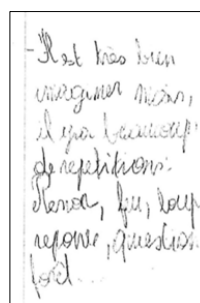 - Il est très bien
imaginer mais,
il y a beaucoup
de repetitions:
Renar, feu, loup
reponse, question
foret...